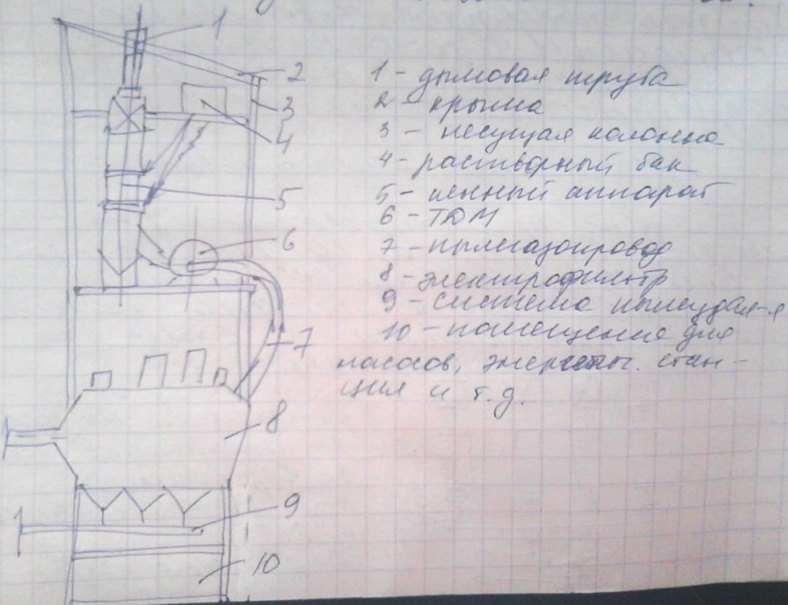 1
2
3
4
5
6
7
8
9
10
1 - дымовая труба
2 - крыша
3 - несущая колонна
4 - растворный бак
5 - пенный аппарат
6 - ТДМ
7 - пылегазопровод
8 - электрофильтр
9 - система пылеудал-я
10 - помещение для
насосов, стан-
ция и т.д.